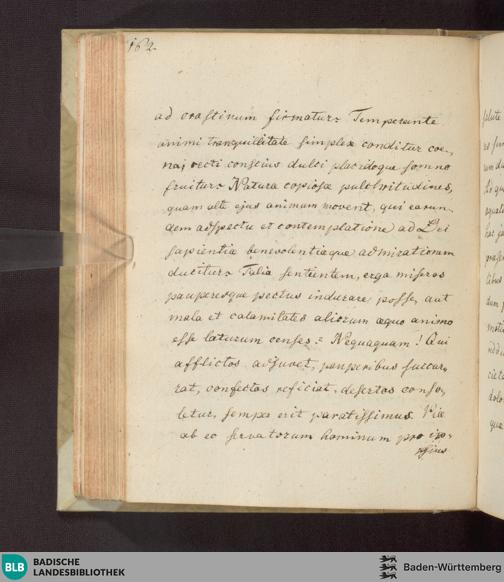 162.
ad crastinum firmatur. Temperante
animi tranquillitate simplex conditur coe-
na; recti conscius dulci placidoque somno
fruitur. Natura copiosa pulchritudines,
quam alte ejus animum movent, qui earun-
dem adspectu et contemplatione ad Dei
sapientiae benevolentiaeque admirationem
ducitur. Talia sentientem, erga miseros
pauperesque pectus indurare posse, aut
mala et calamitates aliorum aequo animo
esse laturum censes? Nequaquam! Qui
afflictos adjuvet, pauperibus succur-
rat, confectos reficiat, desertos conso-
letur, semper erit paratissimus. Piae
ab eo servatorum hominum pro ip-
sius
BLB
BADISCHE
LANDESBIBLIOTHEK
Baden-Württemberg